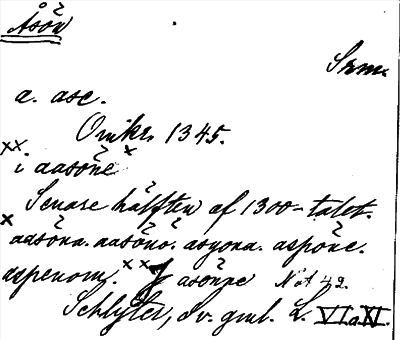 Åsön
Srm.
a. asc.
Omkr. 1345.
xx. x
i aasöne
Senare hälften af 1300-talet.
x aasöna. aasöno. asyona. aspöne.
aspenom. xx J asönne Not 42.
Schlyter, Sv. gml. L. VI. a. XI.